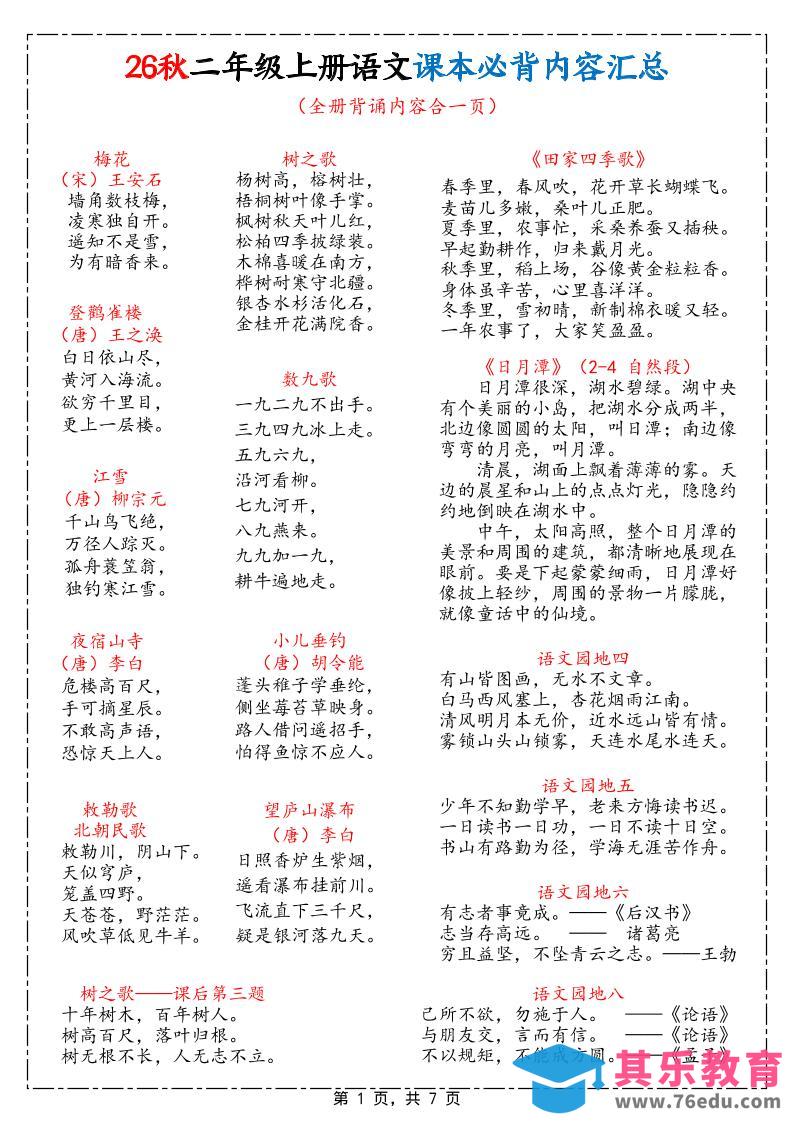 26秋二年级上册语文课本必背内容汇总
（全册背诵内容合一页）
梅花
（宋）王安石
墙角数枝梅，
凌寒独自开。
遥知不是雪，
为有暗香来。
登鹳雀楼
（唐）王之涣
白日依山尽，
黄河入海流。
欲穷千里目，
更上一层楼。
江雪
（唐）柳宗元
千山鸟飞绝，
万径人踪灭。
孤舟蓑笠翁，
独钓寒江雪。
夜宿山寺
（唐）李白
危楼高百尺，
手可摘星辰。
不敢高声语，
恐惊天上人。
敕勒歌
北朝民歌
敕勒川，阴山下。
天似穹庐，
笼盖四野。
天苍苍，野茫茫。
风吹草低见牛羊。
树之歌
杨树高，榕树壮，
梧桐树叶像手掌。
枫树秋天叶儿红，
松柏四季披绿装。
木棉喜暖在南方，
桦树耐寒守北疆。
银杏水杉活化石，
金桂开花满院香。
数九歌
一九二九不出手。
三九四九冰上走。
五九六九，
沿河看柳。
七九河开，
八九燕来。
九九加一九，
耕牛遍地走。
小儿垂钓
（唐）胡令能
蓬头稚子学垂纶，
侧坐莓苔草映身。
路人借问遥招手，
怕得鱼惊不应人。
望庐山瀑布
（唐）李白
日照香炉生紫烟，
遥看瀑布挂前川。
飞流直下三千尺，
疑是银河落九天。
《田家四季歌》
春季里，春风吹，花开草长蝴蝶飞。
麦苗儿多嫩，桑叶儿正肥。
夏季里，农事忙，采桑养蚕又插秧。
早起勤耕作，归来戴月光。
秋季里，稻上场，谷像黄金粒粒香。
身体虽辛苦，心里喜洋洋。
冬季里，雪初晴，新制棉衣暖又轻。
一年农事了，大家笑盈盈。
《日月潭》（2-4 自然段）
日月潭很深，湖水碧绿。湖中央
有个美丽的小岛，把湖水分成两半，
北边像圆圆的太阳，叫日潭；南边像
弯弯的月亮，叫月潭。
清晨，湖面上飘着薄薄的雾。天
边的晨星和山上的点点灯光，隐隐约
约地倒映在湖水中。
中午，太阳高照，整个日月潭的
美景和周围的建筑，都清晰地展现在
眼前。要是下起蒙蒙细雨，日月潭好
像披上轻纱，周围的景物一片朦胧，
就像童话中的仙境。
语文园地四
有山皆图画，无水不文章。
白马西风塞上，杏花烟雨江南。
清风明月本无价，近水远山皆有情。
雾锁山头山锁雾，天连水尾水连天。
语文园地五
少年不知勤学早，老来方悔读书迟。
一日读书一日功，一日不读十日空。
书山有路勤为径，学海无涯苦作舟。
语文园地六
有志者事竟成。——《后汉书》
志当存高远。 —— 诸葛亮
穷且益坚，不坠青云之志。——王勃
树之歌——课后第三题
十年树木，百年树人。
树高百尺，落叶归根。
树无根不长，人无志不立。
语文园地八
己所不欲，勿施于人。 ——《论语》
与朋友交，言而有信。 ——《论语》
不以规矩，不能成方圆。——《孟子》
第 1 页，共 7 页
其乐教育
www.76edu.com